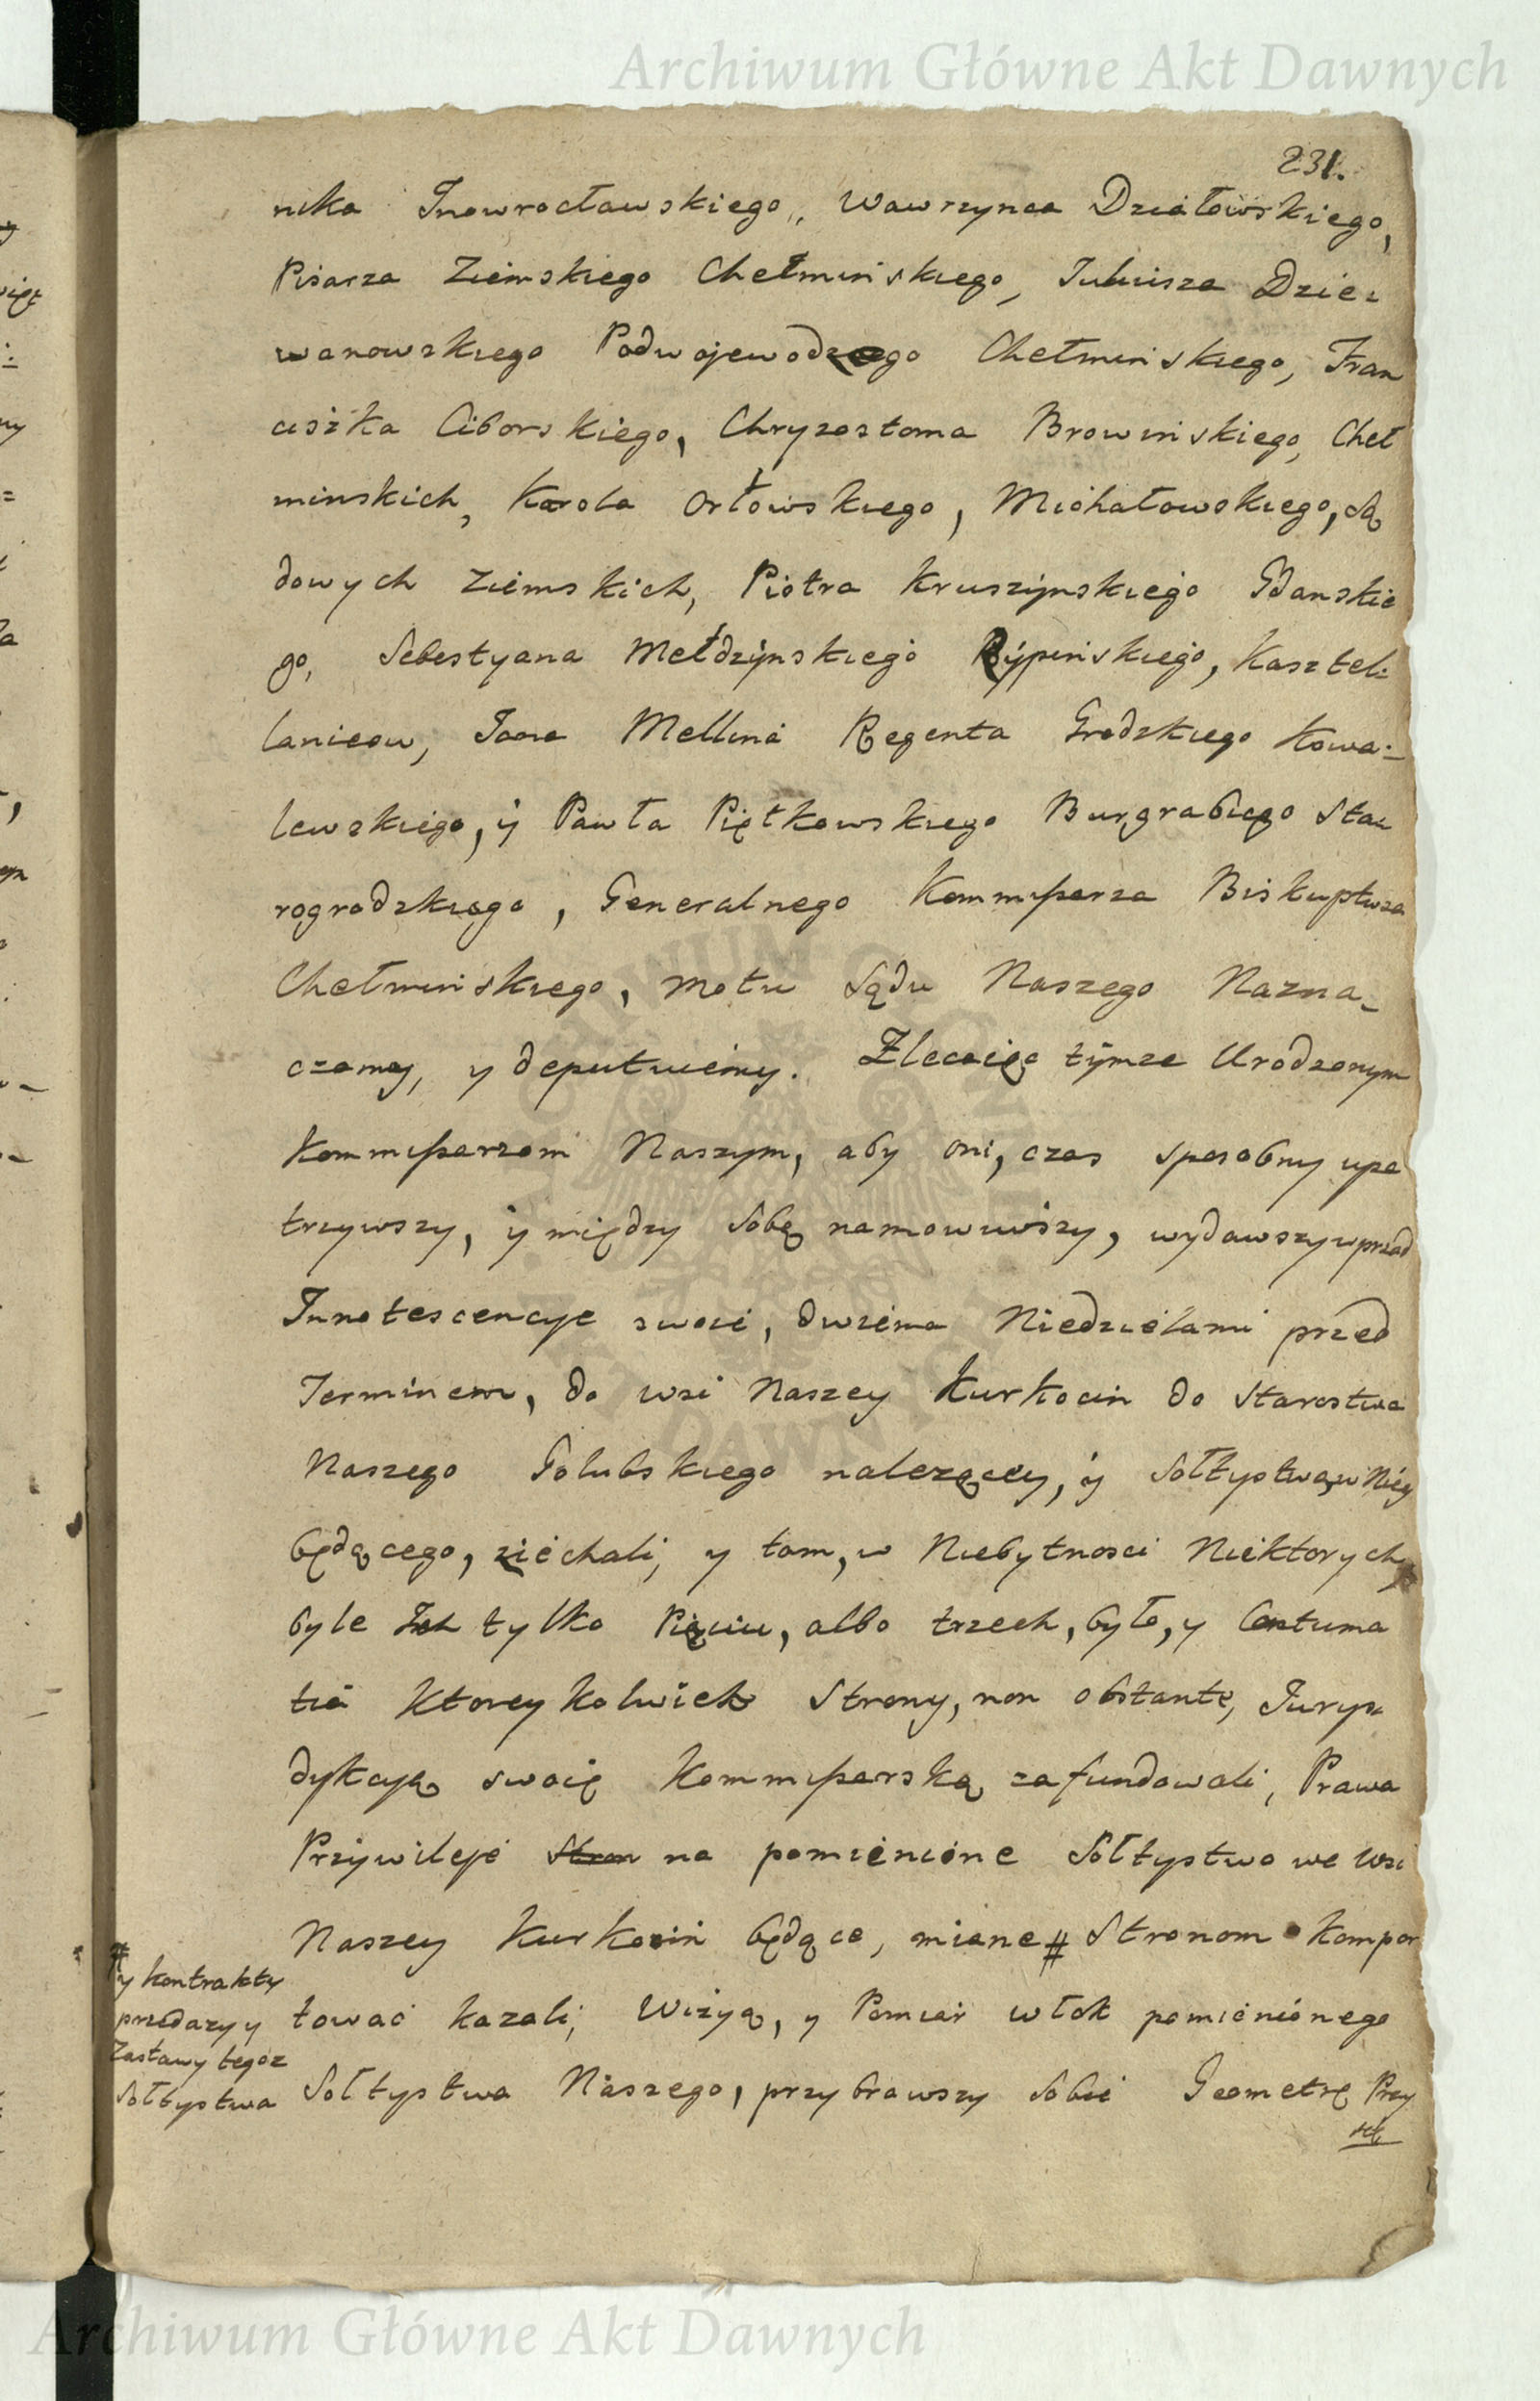 Archiwum Główne Akt Dawnych
231.
nika Inowrocławskiego, Wawrzynca Działowskiego,
Pisarza Ziemskiego Chełminskiego, Juliusza Dzie-
wanowskiego Podwojewodzego Chełminskiego, Fran
ciszka Ciborskiego, Chryzostoma Browinskiego, Cheł
minskich, Karola Orłowskiego, Michałowskiego, Są
dowych Ziemskich, Piotra Kruszynskiego Gdanskie
go, Sebestyana Mełdzynskiego Rypinskiego, Kasztel-
lanicow, Jana Mellina Regenta Grodzkiego Kowa-
lewskiego, y Pawła Piętkowskiego Burgrabiego Sta-
rogrodzkiego, Generalnego Kommissarza Biskuptwa
Chełminskiego, motu Sądu Naszego Nazna-
czamy, y deputuiemy. Zlecaiąc tymze Urodzonym
Kommissarzom Naszym, aby oni, czas sposobny upa
trzywszy, y między sobą namowiwszy, wydawszy wprzod
Innotescencye swoie, dwiema Niedzielami przed
Terminem, do wsi Naszey Kurkocin do Starostwa
Naszego Golubskiego nalezącey, y Sołtystwa, w Niey
będącego, ziechali, y tam, w Niebytnosci Niektorych
byle Ich tylko Pięciu, albo trzech, było, y Contuma
tia ktoreykolwiek Strony, non obstante, Juryz-
dykcyą swoię Kommissarską zafundowali, Prawa
Przywileje Stron na pomienione Sołtystwo we Wsi
Naszey Kurkocin będące, miane # Stronom Kompor
# y kontrakty
przedazy y
Zastawy tegoz
Sołtystwa
tować kazali, Wizyą, y Pomiar włok pomienionego
Sołtystwa Naszego, przybrawszy sobie Geometrę Przy
Archiwum Główne Akt Dawnych